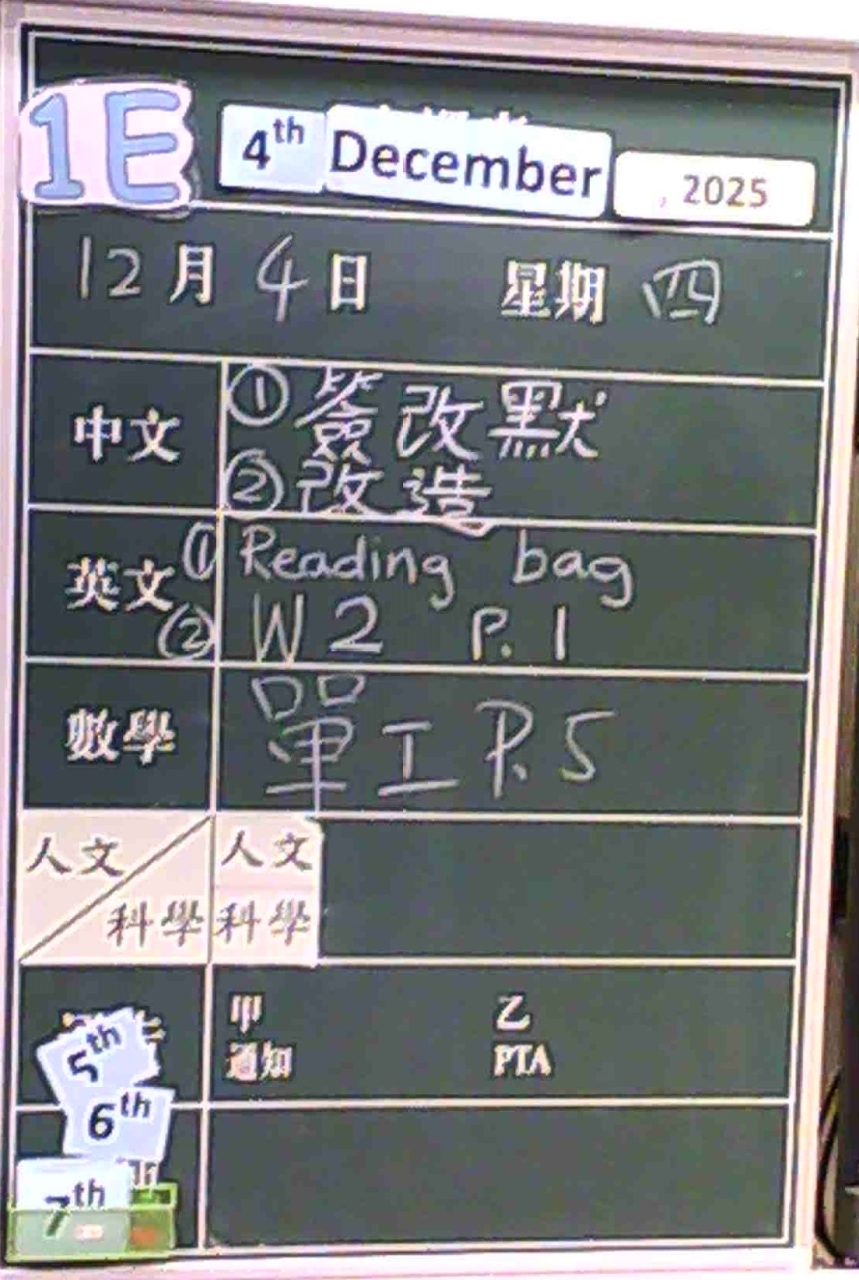 1E
4th December , 2025
12月4日 星期四
中文 ①簽改默
②改造
英文 ① Reading bag
② W2 P.1
數學 單工 P.5
人文 人文
科學 科學
甲 乙
通知 PTA
5th
6th
7th